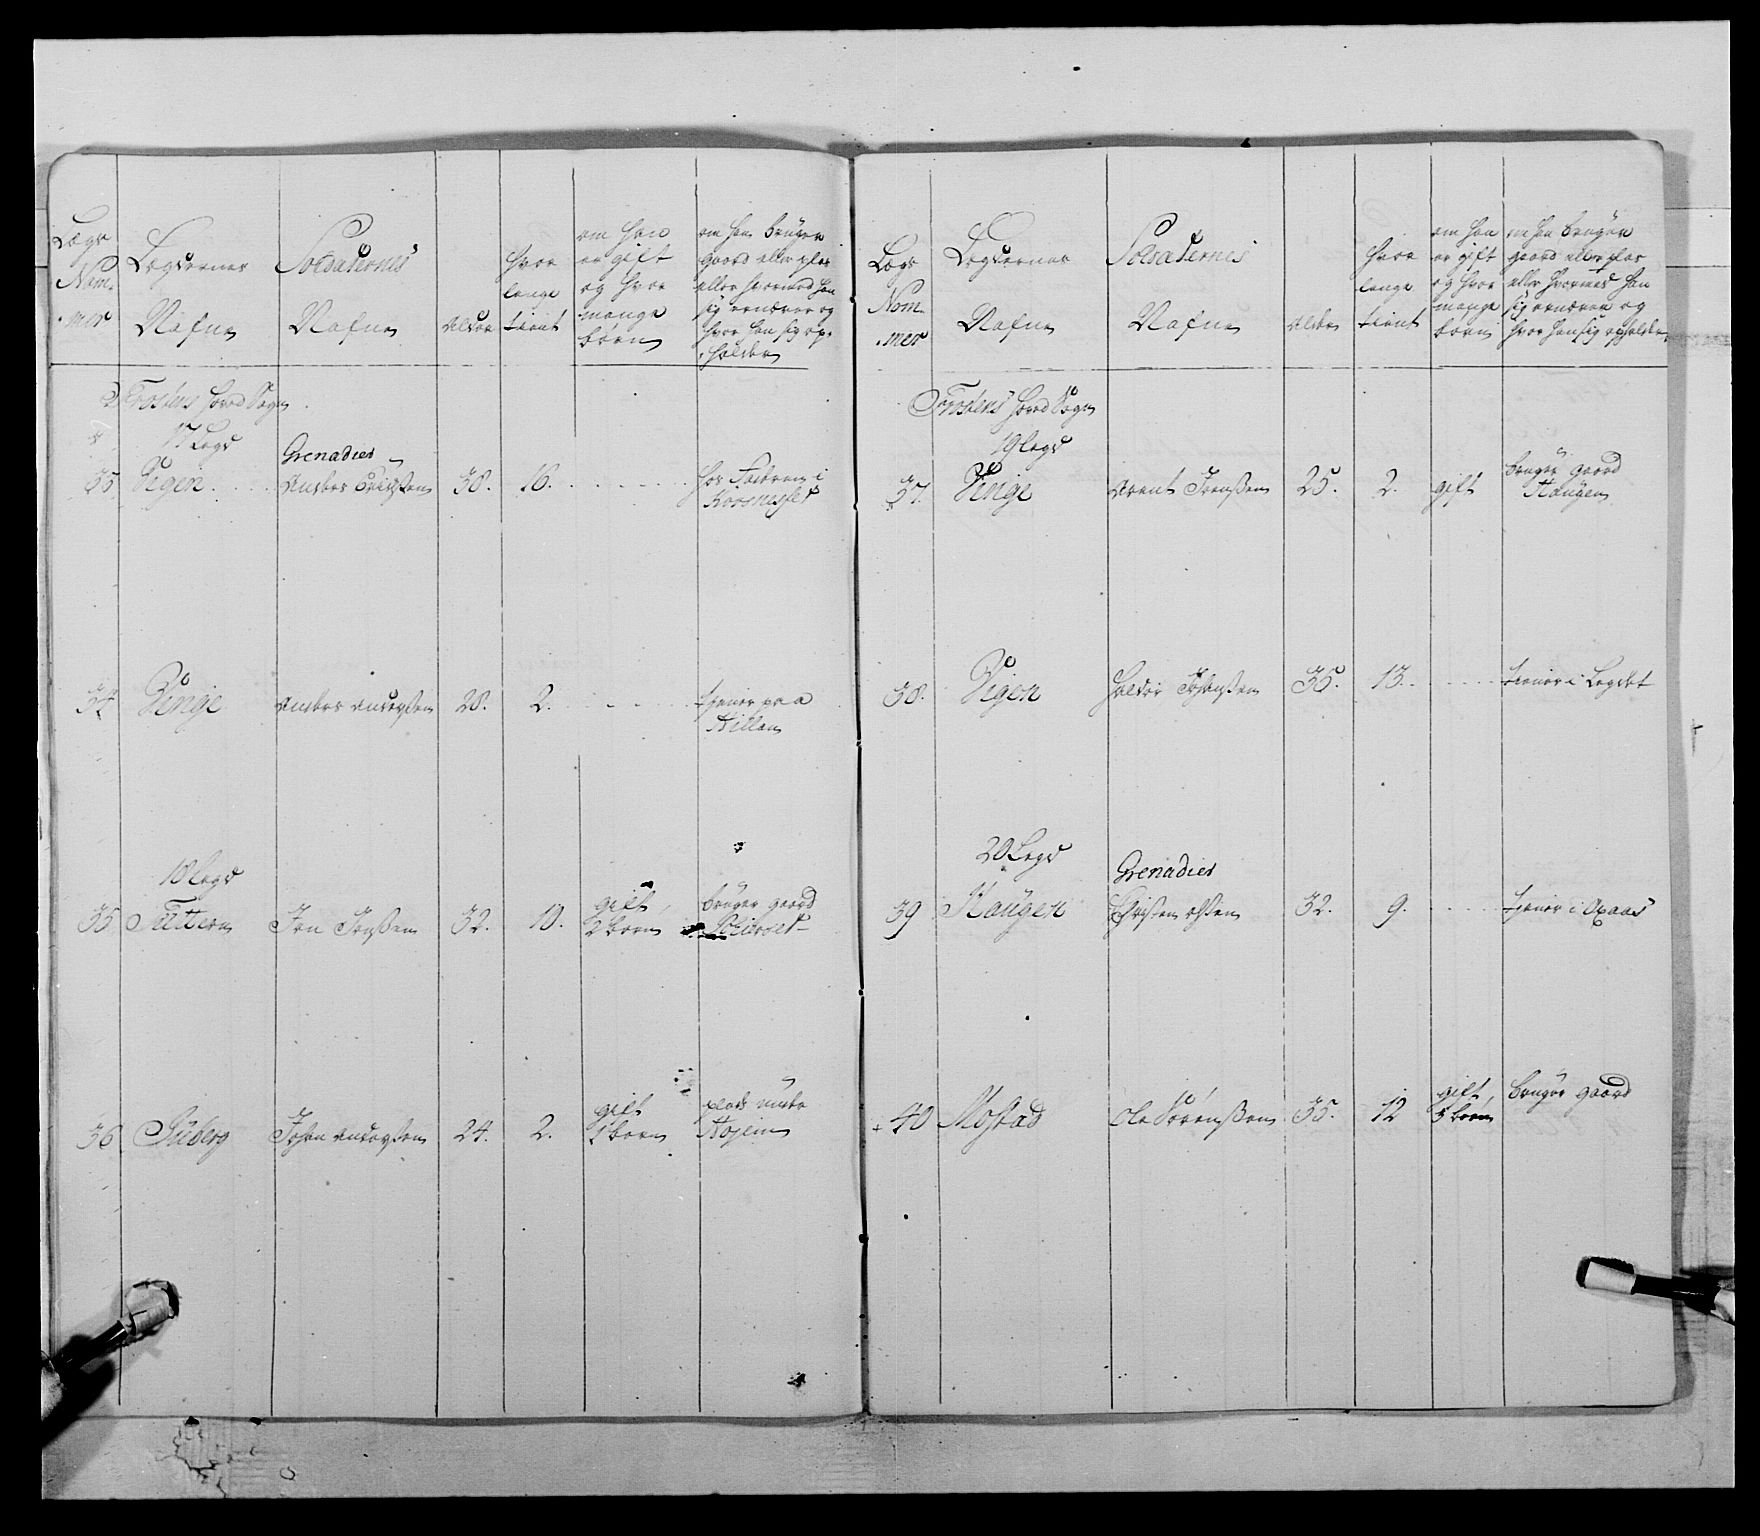 Lægs
Nom-
-mer
Legdernes
Nafne
Soldaternes
Nafne
Alder
hvor
lenge
tient
om han
er gift
og hvor
mange
børn
om han bruger
gaard eller plas
eller hvormed han
sig ernærer og
hvor han sig op-
-holder
Frostens hoved Sogn
17 Legd
Grenadier
Vigen
Anders Erichsen
38.
16.
hos Faderen i
34
Vinge
Anders Andersen
28.
2.
tjener paa
18 Legd
35
Jon Jonsen
32.
10.
gift
2 børn
bruger gaard
36
Johan Andersen
24.
2.
gift
1 børn
plads under
Lægs
Nom-
-mer
Legdernes
Nafne
Soldaternes
Nafne
Alder
hvor
lenge
tient
om han
er gift
og hvor
mange
børn
om han bruger
gaard eller plas
eller hvormed han
sig ernærer og
hvor han sig opholder
Frostens hoved Sogn
19 Legd
37.
Vinge
Arent Jrensen
25.
2.
gift
bruger gaard
Haugen
38.
Vigen
Haldor Johansen
35.
13.
tiener i Legdet
20 Legd
Grenadier
39
Haugen
Christen Olsen
32.
9.
tjener i Aasas
40
Mostad
Ole Sørensen
35.
12
gift
3 børn
bruger gaard